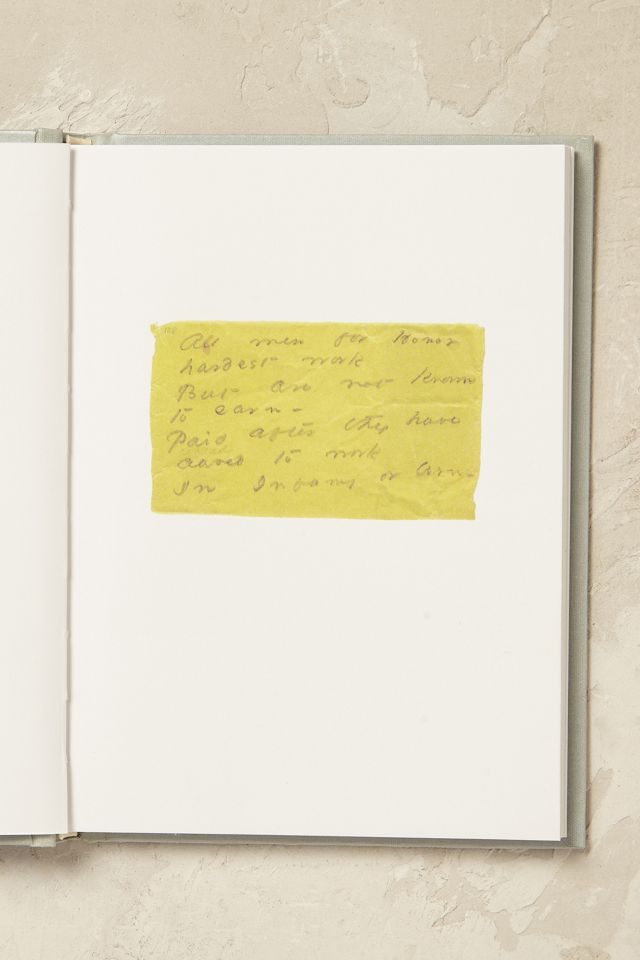 All men for Honor
hardest work
But are not known
to earn –
Paid after they have
ceased to work
In Infamy or Urn –